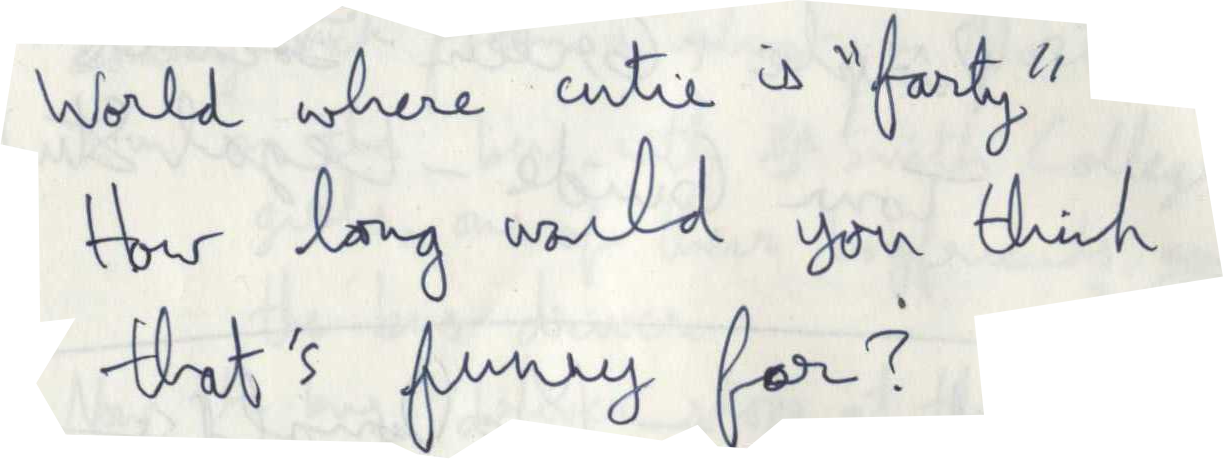 World where cutie is "farty"
How long would you think
that's funny for?